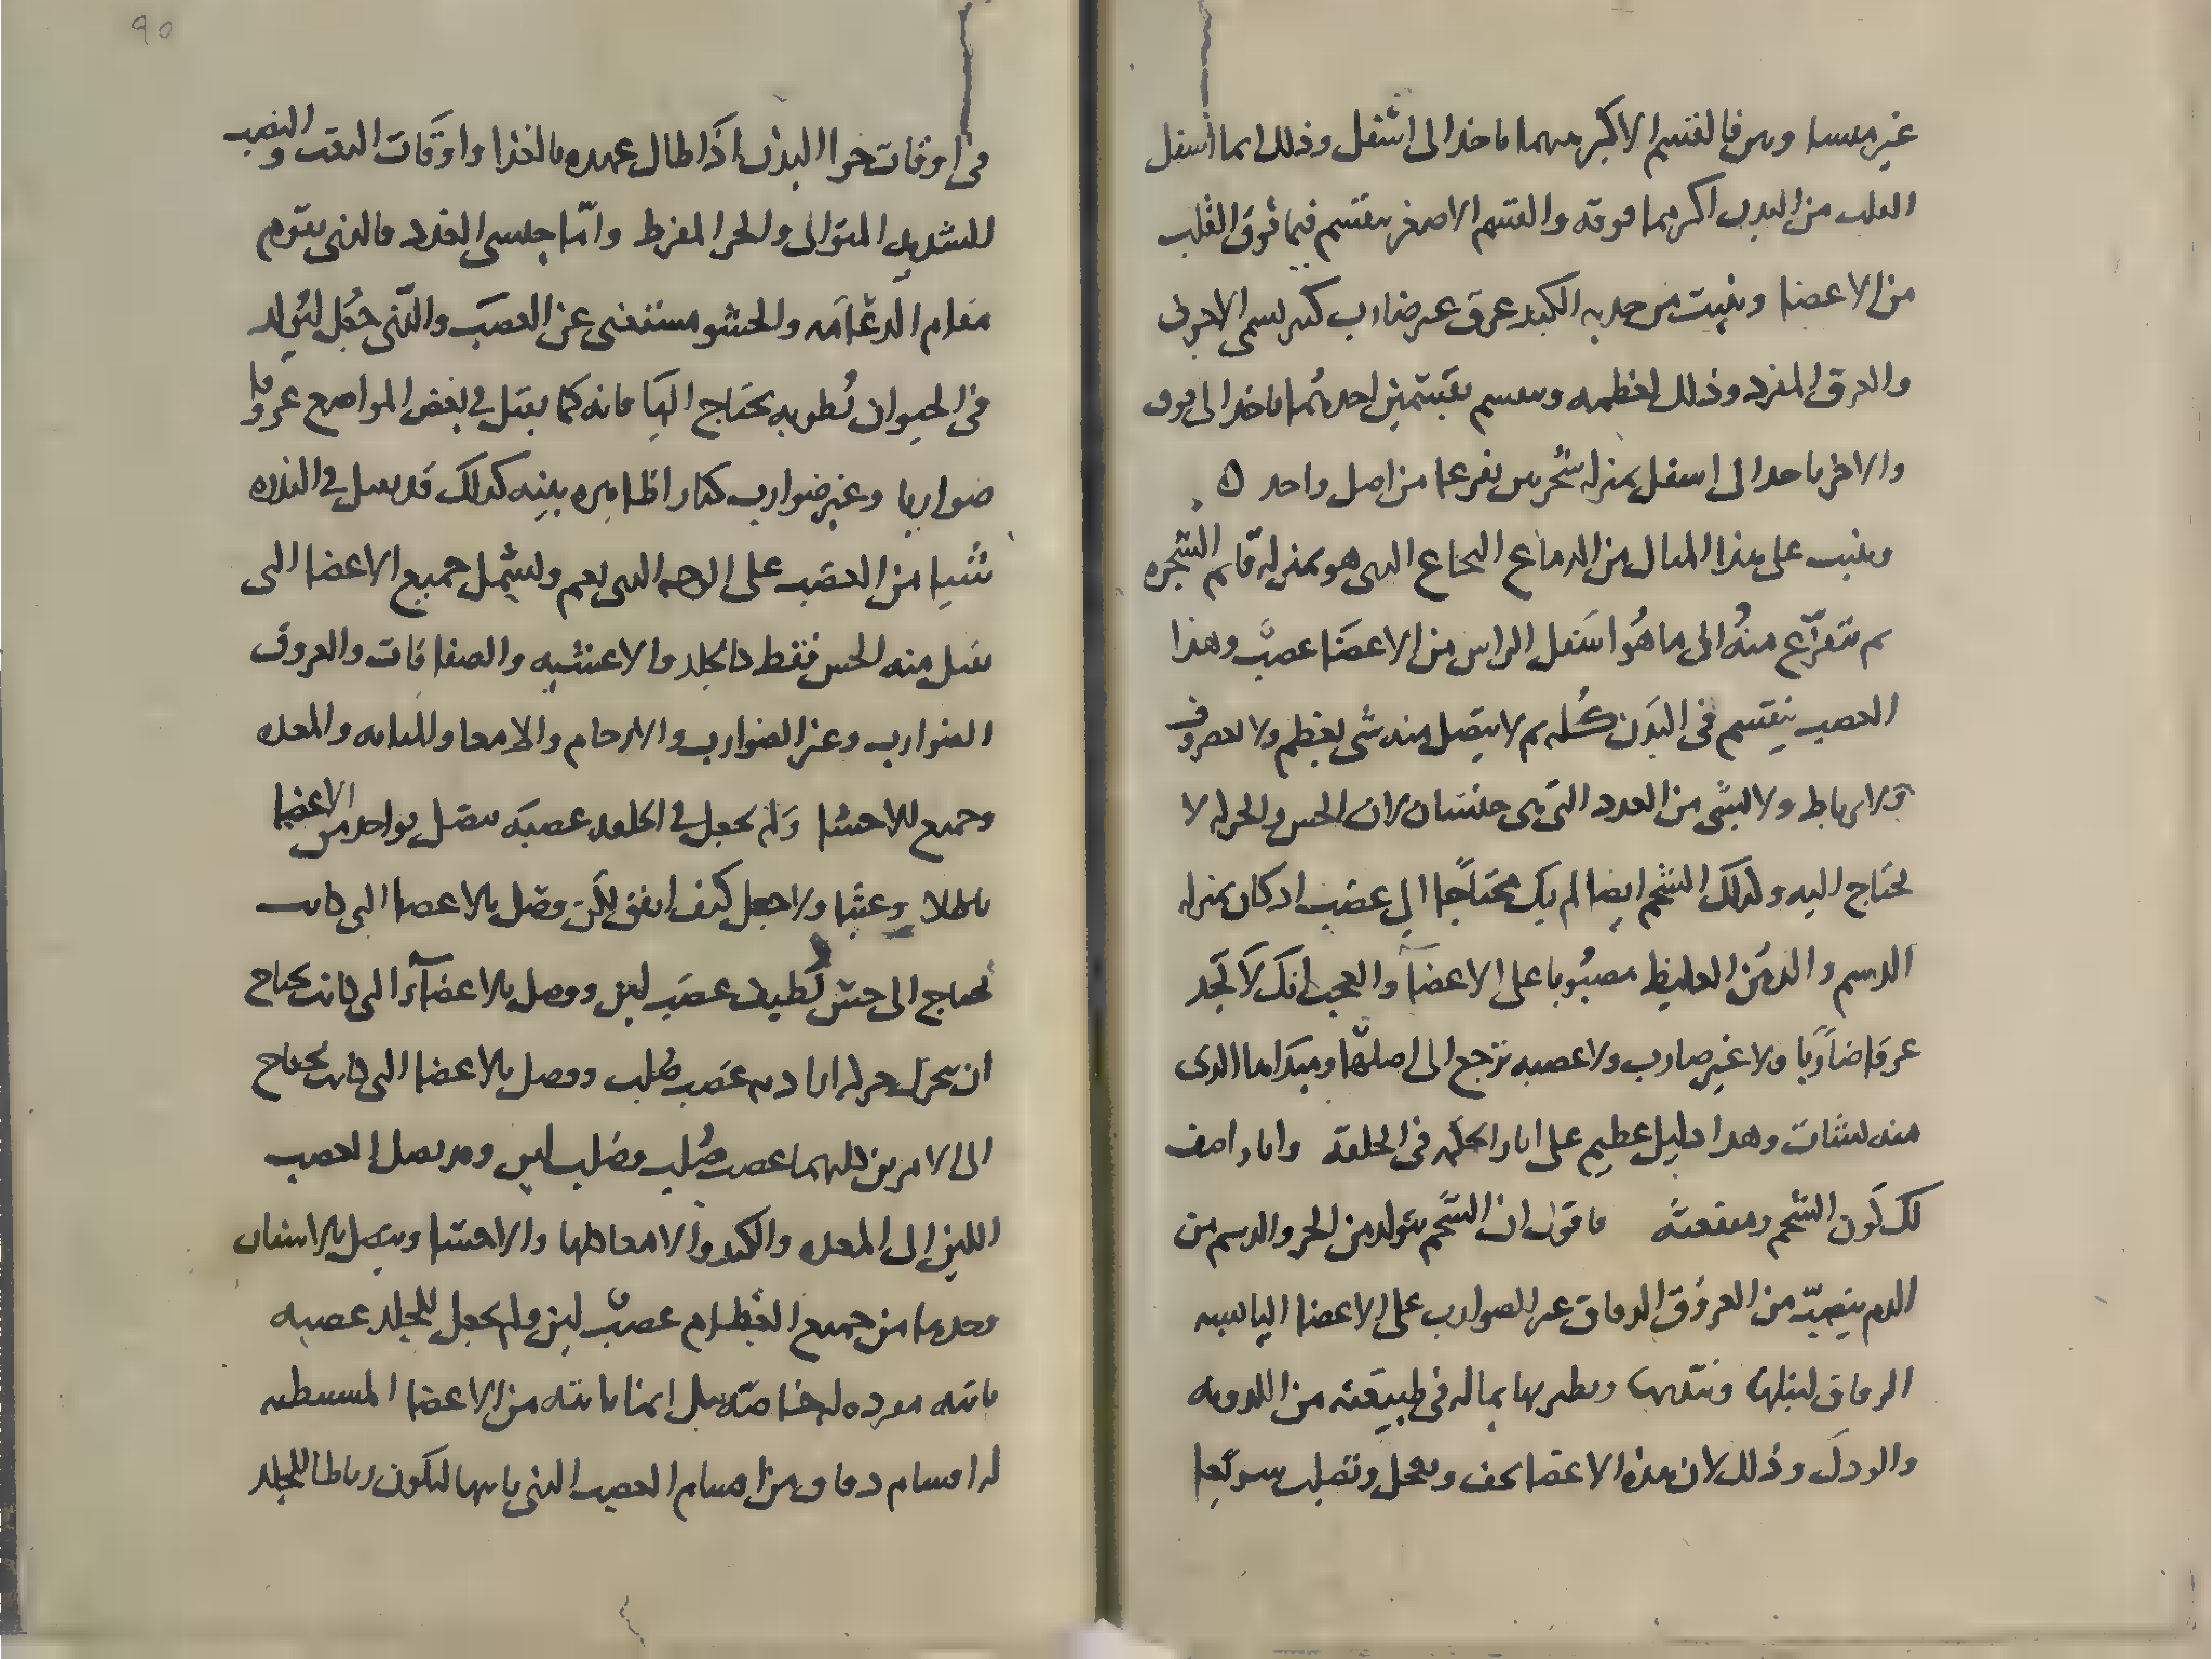 غير مفسا وبين فالقسم الاكبر منهما ياخذ الى اسفل وذلك انما اسفل
القلب من البدن اكثر مما فوقه والقسم الاصغر ينقسم فيما فوق القلب
من الاعضا وينبت من حدبه الكبد عرق غير ضارب كبير يسمى الاجوف
والعرق المفرد وذلك لعظمه وينقسم بقسمين احدهما ياخذ الى فوق
والاخر ياخذ الى اسفل بمنزله شجرتين تفرعا من اصل واحد ه
وينبت على هذا المثال من الدماغ النخاع الذى هو بمنزله قايم الشجره
ثم يتفرع منه الى ما هو اسفل الراس من الاعضا عصب وهذا
العصب ينقسم فى البدن كله ثم لا يتصل منه شى بعظم ولا بغضروف
ولا برباط ولا بشى من الغدد التى هى جنسان لان الحس والحركه لا
تحتاج اليه ولذلك الشحم ايضا لم يك محتاجا الى عصب اذ كان بمنزله
الدسم والدهن الغليظ مصبوبا على الاعضا والعجب انك لا تجد
عرقا ضاربا ولا غير ضارب ولا عصبه ترجع الى اصلها ومبداها الذى
منه نشات وهذا دليل عظيم على اثار الحكمه فى الخلقة وانا واصف
لك كون الشحم ومنفعته فاقول ان الشحم يتولد من الجزو الدسم من
الدم ينصب من العروق الدقاق غير الضوارب على الاعضا اليابسه
الرقاق ليبلها ويرطبها بما له فى طبيعته من اللدونه
والودك وذلك لان هذه الاعضا تجف وتقحل وتصلب سريعا
90
فى اوقات خوا البدن اذا طال عهده بالغذا واوقات التعب والنصب
الشديد المتوالى والحر المفرط واما جنسى الغدد فالذى يقوم
مقام الدعامه والحشو مستغنى عن العصب والذى جعل ليولد
فى الحيوان رطوبه يحتاج اليها فانه كما يقبل فى بعض المواضع عروقا
ضواربا وغير ضوارب كبار اظاهره بينه كذلك قد يقبل فى الندره
شيا من العصب على الوجه الذى يعم ويشمل جميع الاعضا التى
يقبل منه الحس فقط كالجلد والاغشيه والصفاقات والعروق
الضوارب وغير الضوارب والارحام والامعا والمثانه والمعده
وجميع الاحشا ولم يجعل فى الخلقه عصبه تتصل بواحد من الاعضا
باطلا وعبثا ولا جعل كيف اتفق لكن وصل بالاعضا التى كانت
تحتاج الى حس لطيف عصب لين ووصل بالاعضآء التى كانت تحتاج
ان تحرك حركه اراديه عصب صلب ووصل بالاعضا التى كانت تحتاج
الى الامرين كليهما عصب صلب وعصب لين وقد يصل العصب
اللين الى المعده والكبد والامعا كلها والاحشا ويتصل بالاسنان
وحدها من جميع العظام عصب لين ولم يجعل للجلد عصبه
ياتيه مفرده له خاصه بل انما ياتيه من الاعضا المبسطه
له اقسام دقاق من اقسام العصب الذى ياتيها ليكون رباطا للجلد